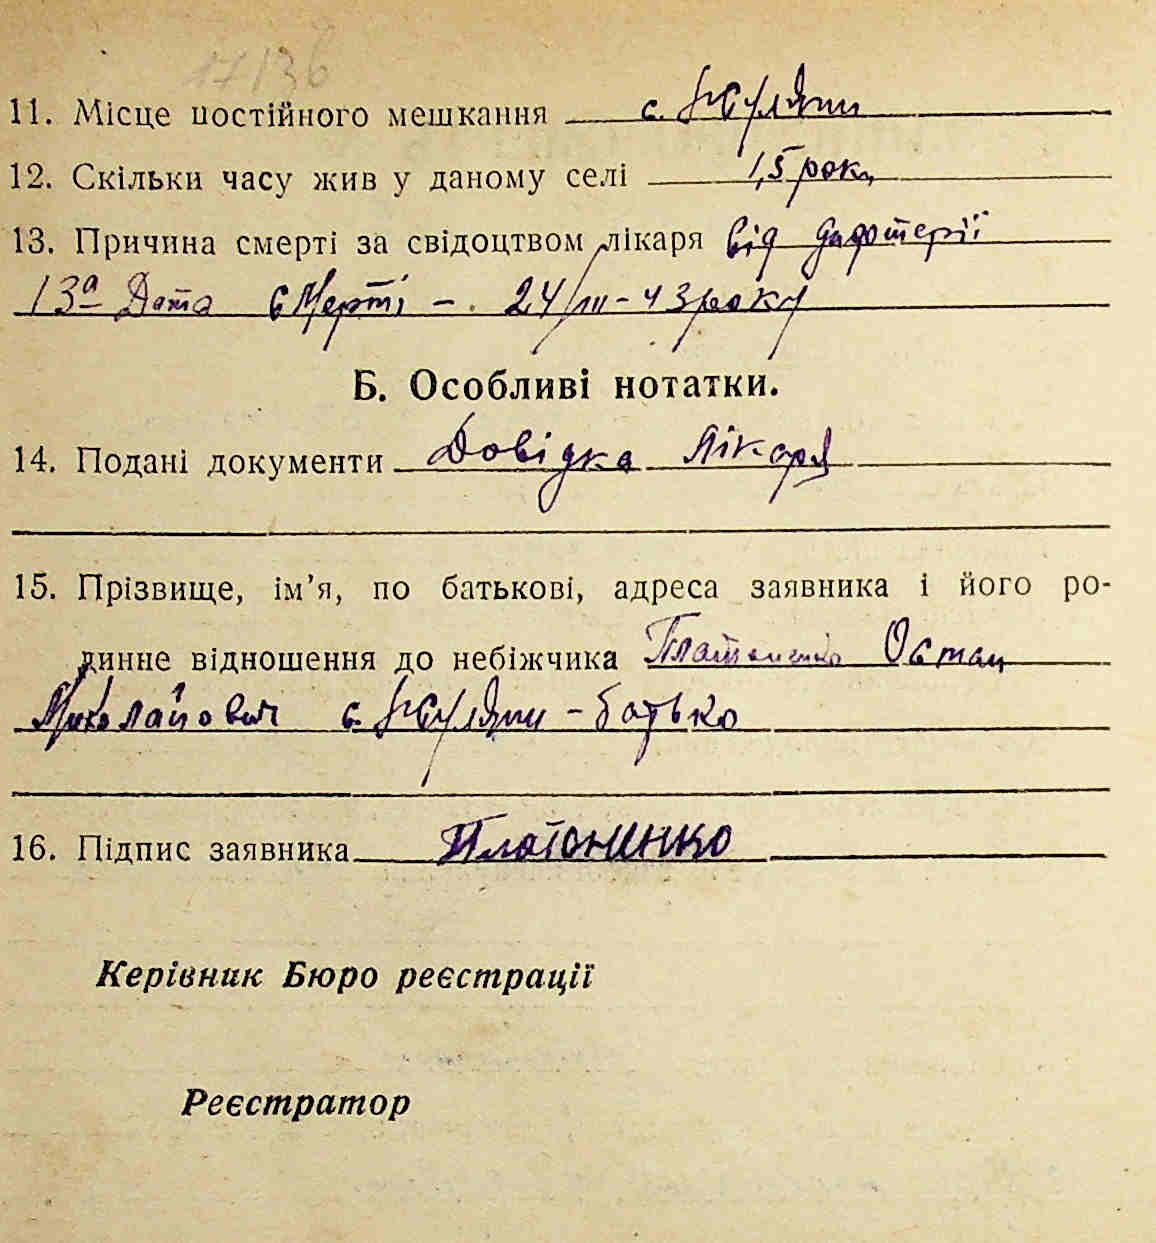 17136
11. Місце постійного мешкання с.
12. Скільки часу жив у даному селі 1,5 роки
13. Причина смерті за свідоцтвом лікаря від дифтерії
13а Дата смерті - 24/III - 43 року
Б. Особливі нотатки.
14. Подані документи Довідка лікаря
15. Прізвище, ім'я, по батькові, адреса заявника і його ро-
динне відношення до небіжчика Платоненко Остап
Миколайович с. - батько
16. Підпис заявника Платоненко
Керівник Бюро реєстрації
Реєстратор